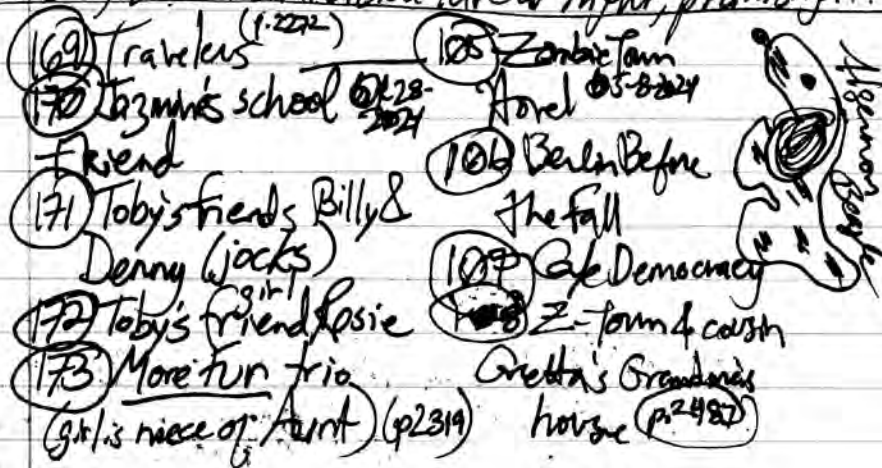 169 Travelers (p.2272)
170 Jazmine's school
Friend
171 Toby's friends Billy &
Denny (jocks)
172 Toby's (girl) friend Rosie
173 More Fun trio
(girl is niece of Aunt) (p2319)
105 Zombie Town
Hovel 05-8-2024
106 Berlin Before
the Fall
107 Cafe Democracy
Z-Town & cousin
Gretta's Grandma's
house (p.2487)
Algernon